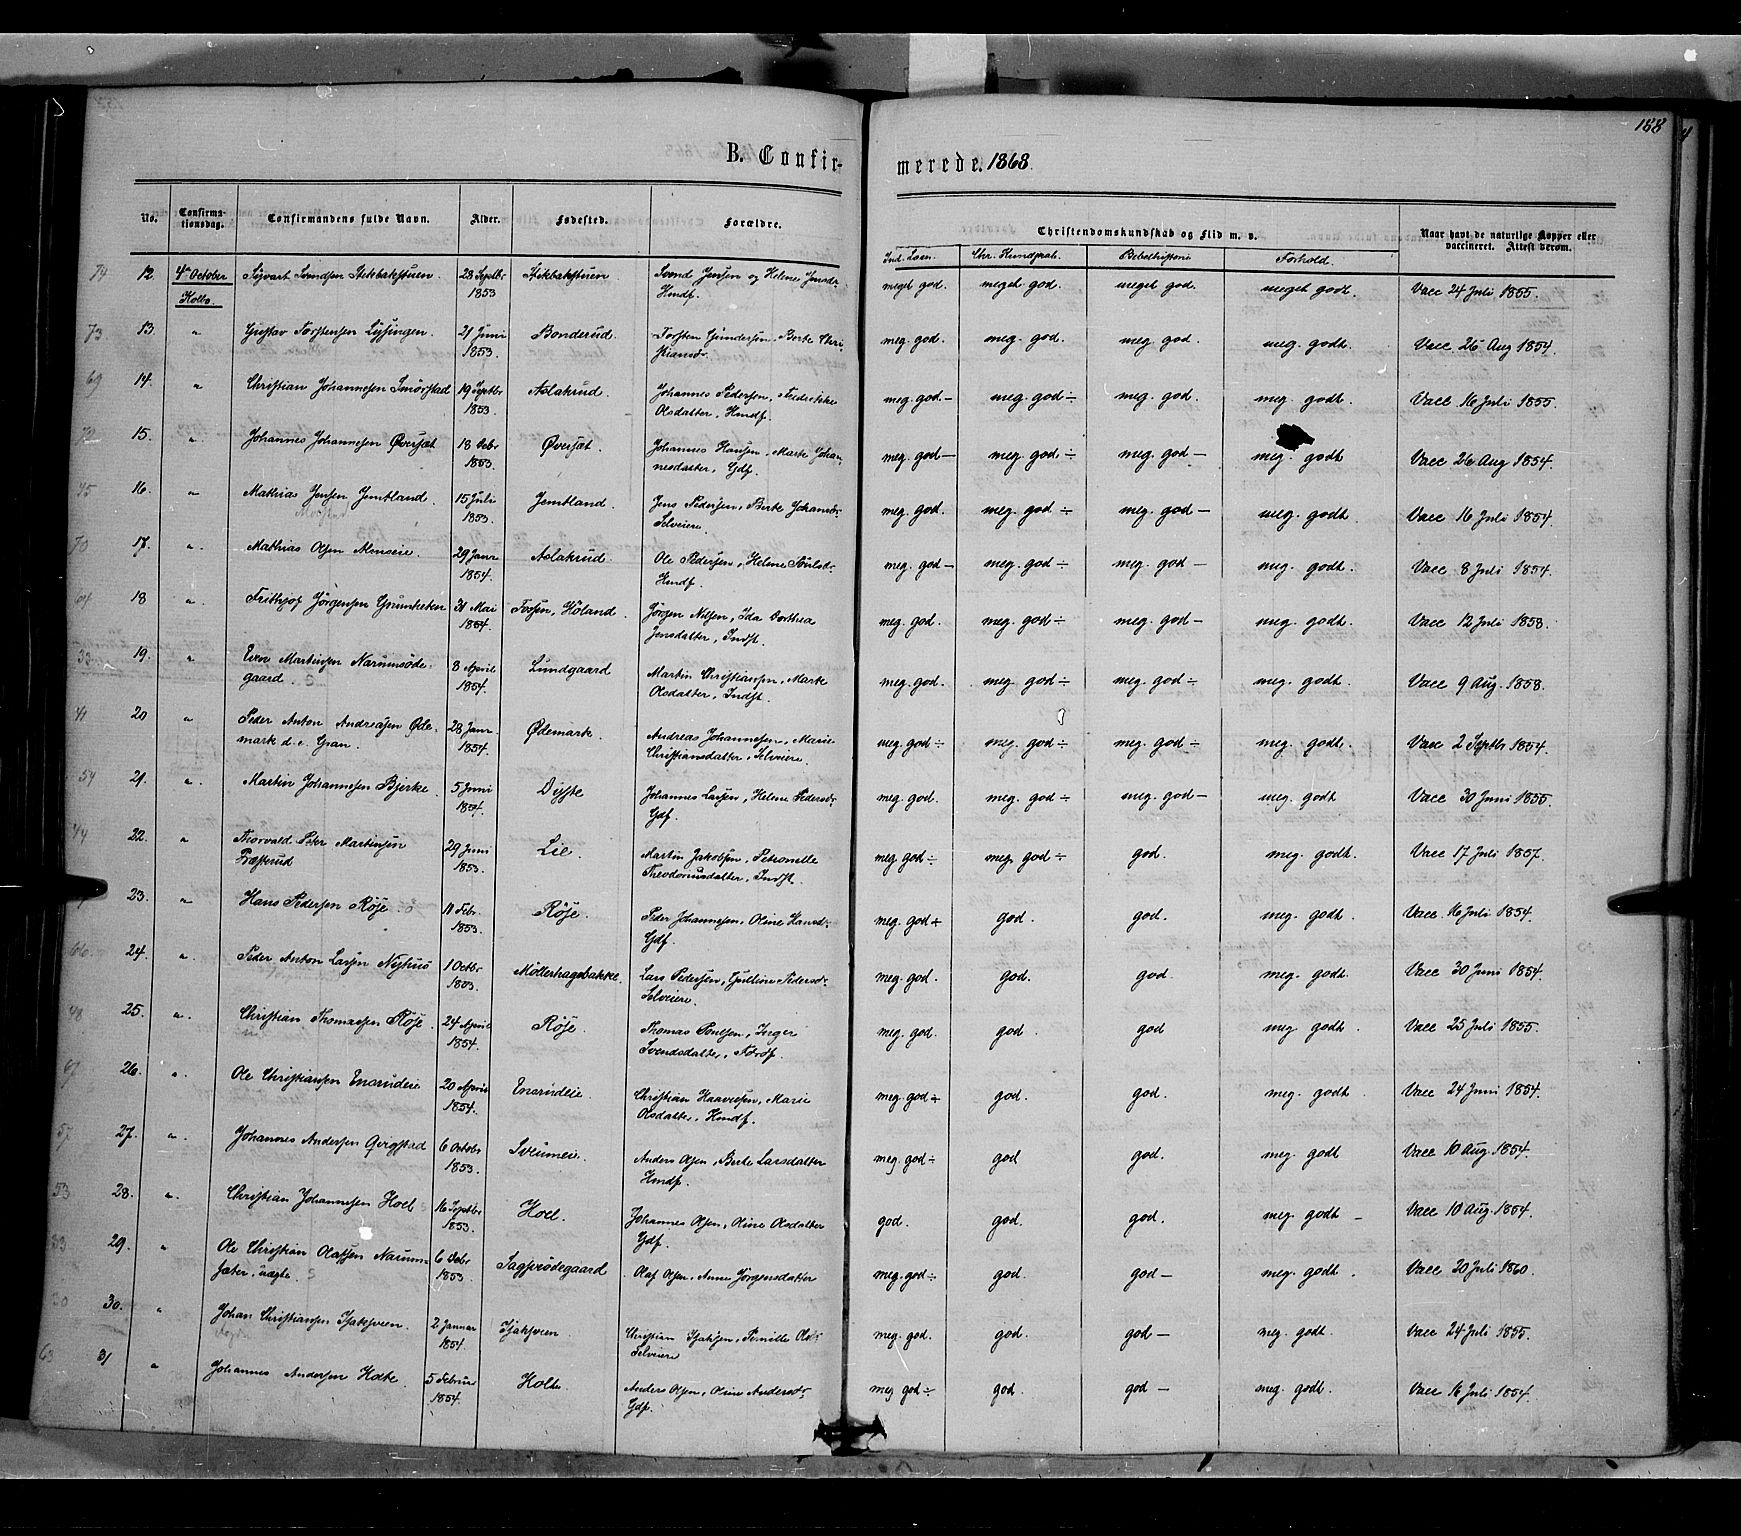 188
B. Confirmerede. 1868.
No. Confirmationsdag. Confirmandens fulde Navn. Alder. Fødested. Forældre. Christendomskundskab og Flid m. v. Naar havt de naturlige Kopper eller vaccineret. Attest derom.
Ind. Læsn. Chr. Kundskab. Forhold.
74 12. 4de October Syvart Svendsen 23 Septbr Svend Jensen og Helene meget god. meget god. meget god. meget godt. Vacc 24 Juli 1855.
Holbo. 1853 Hmdf.
73 13. " Gustav Torstensen 21 Juni Bonderud. Torsten Gundersen, Berte Chri- meg. god. meg. god. meg. god. meg. godt. Vacc 26 Aug 1854.
1853. stiansdr.
69 14. " Christian Johannesen Smørstad 19 Septbr Aslakrud. Johannes Pedersen, Frederikke meg. god - meg. god ÷ meg. god. meg. godt. Vacc 16 Juli 1855.
1853. Olsdatter, Hmdf.
72 15. " Johannes Johannesen Øversæt 18 Decbr Øversæt. Johannes Hansen, Marte Johan- meg. god - meg. god ÷ meg. god - meg. godt Vacc 26 Aug 1854.
1853. nesdatter, Gdf.
45 16. " Mathias Jensen Jemtland. 15 Juli Jemtland. Jens Pedersen, Berte Johansdr. meg. god. meg. god ÷ meg. god - meg. godt Vacc 16 Juli 1854.
1853. Selveiere.
70 17. " Mathias Olsen Almseie. 29 Janr Aslakrud. Ole Pedersen, Helene Poulsdr. meg. god - meg. god ÷ meg. god - meg. godt. Vacc 8 Juli 1854.
1854. Hmdf.
64 18 " Frithjof Jørgensen 31 Mai Fossen, Höland. Jørgen Nilsen, Ida Dorthea meg. god. meg. god ÷ meg. god - meg. godt. Vacc 12 Juli 1858.
1854. Jensdatter, Indst.
33 19. " Even Martinsen Narumsøde- 8 April Lundgaard Martin Christiansen, Marte meg. god. meg. god ÷ meg. god ÷ meg. godt. Vacc 9 Aug. 1858.
gaard. 1854. Olsdatter, Indst.
41 20 " Peder Anton Andreasen Øde- 28 Janr Ødemark. Andreas Johannesen, Marie meg. god ÷ meg. god ÷ meg. god ÷ meg. godt. Vacc 2 Septbr 1854.
mark d. e. Gran. 1854. Christiansdatter, Selveiere.
54 21. " Martin Johannesen Bjerke. 5 Juni Dyste Johannes Larsen, Helene Pedersdr. meg. god. meg. god ÷ meg. god - meg. godt Vacc 30 Juni 1855.
1854. Gdf.
44 22. " Thorvald Peter Martinsen 29 Juni Lie. Martin Jakobsen, Petronelle meg. god ÷ meg. god ÷ god. meg. godt. Vacc 17 Juli 1857.
Præsterud 1853. Theodoriusdatter, Indst.
23. " Hans Pedersen Röise. 11 Febr. Röise. Peder Johannesen, Oline Hansdr. meg. god ÷ god. god. meg. godt. Vacc. 16 Juli 1854.
1853. Gdf.
66 24. " Peder Anton Larsen Nyhus 1 Octbr Möllerhagsbakke. Lars Pedersen, Gulline Pedersdr. meg. god. god. god meg. godt. Vacc 30 Juni 1854.
1853. Selveiere.
48 25. " Christian Thomassen Röise. 24 April Röise. Thomas Poulsen, Inger meg. god. god. god meg. godt. Vacc 25 Juli 1855.
1854. Svendsdatter,
67 26. " Ole Christiansen Enerudeie 20 April Enerudeie. Christian Haavesen, Marie meg. god ÷ god. god. meg. godt. Vacc 24 Juni 1854.
1854. Olsdatter, Hmdf.
57 27. " Johannes Andersen Gergstad 6 Octobr Sveumeie. Anders Olsen, Berte Larsdatter meg. god ÷ god god. meg. godt Vacc 10 Aug. 1854.
1853. Hmdf.
53 28. " Christian Johannesen Hoel 16 Septbr Hoel. Johannes Olsen, Oline Olsdatter god. god. god. meg. godt - Vacc 10 Aug. 1854.
1853. Gdf.
83 29. " Ole Christian Olafsen Narum- 6 Decbr Sagsødegaard Olaf Olsen, Anne Jörgensdatter meg. god ÷ god. god - meg. godt. Vacc 20 Juli 1860.
sæter, uægte. 1853.
30 30. " Johan Christiansen Isaksveen. 2 Januar Isaksveen Christian Isaksen, Pernille Olsdr. meg. god. god. god - meg. godt. Vacc 24 Juli 1855.
1854. Selveiere
63 31 " Johannes Andersen Holte. 5 Februar Holte. Anders Olsen, Oline Andersdr. meg god ÷ god. god - meg. godt. Vacc 16 Juli 1854.
1854. Gdf.